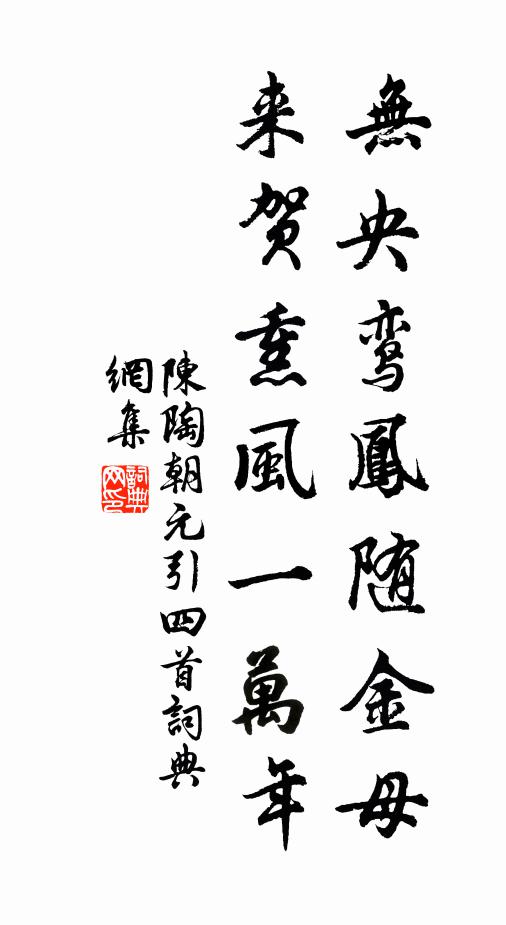 無央鸾鳳随金母
来贺熏風一萬年
陳陶朝元引四首詞典
網集
詞典
网印